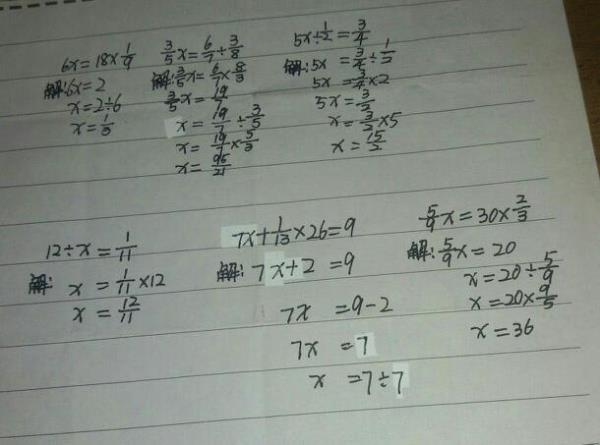 6x=18×1/9
解:6x=2
x=2÷6
x=1/3
3/5x=6/7÷3/8
解:3/5x=6/7×8/3
3/5x=19/7
x=19/7÷3/5
x=19/7×5/3
x=95/21
5x÷1/2=3/4
解:5x=3/4÷1/2
5x=3/4×2
5x=3/2
x=3/2×5
x=15/2
12÷x=1/11
解: x=1/11×12
x=12/11
7x+1/13×26=9
解:7x+2=9
7x=9-2
7x=7
x=7÷7
5/9x=30×2/3
解:5/9x=20
x=20÷5/9
x=20×9/5
x=36